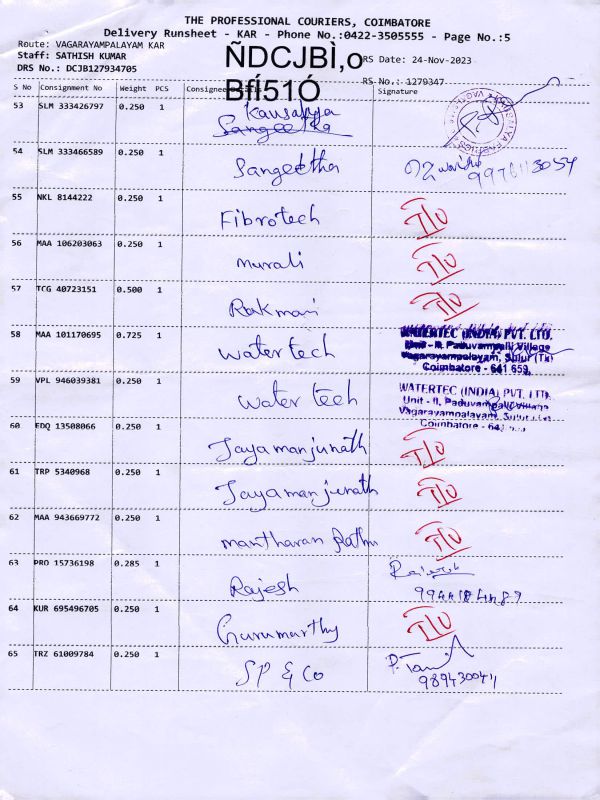 THE PROFESSIONAL COURIERS, COIMBATORE
Delivery Runsheet - KAR - Phone No.:0422-3505555 - Page No.:5
Route: VAGARAYAMPALAYAM KAR
Staff: SATHISH KUMAR
DRS No.: DCJB127934705
ÑDCJBÌ,o
BfÍ51Ó
RS Date: 24-Nov-2023
RS No.: 1279347
S No Consignment No Weight PCS Consignee Details Signature
53 SLM 333426797 0.250 1 Kausalya
Sangeetha
54 SLM 333466589 0.250 1 Sangeetha
55 NKL 8144222 0.250 1 Fibrotech T/U
56 MAA 106203063 0.250 1 murali T/U
57 TCG 40723151 0.500 1 Rakmani T/U
58 MAA 101170695 0.725 1 Watertech WATERTEC (INDIA) PVT. LTD.
Unit - II, Paduvampalli Village
Vagarayampalayam, Sulur (Tk)
Coimbatore - 641 659.
59 VPL 946039381 0.250 1 Water tech WATERTEC (INDIA) PVT. LTD.
Unit - II, Paduvampalli Village
Vagarayampalayam, Sulur
Coimbatore - 641
60 EDQ 13508066 0.250 1 Jayamanjunath T/U
61 TRP 5340968 0.250 1 Jayamanjunath T/U
62 MAA 943669772 0.250 1 mantharan T/U
63 PRO 15736198 0.285 1 Rajesh
64 KUR 695496705 0.250 1 Gurumurthy T/U
65 TRZ 61009784 0.250 1 SP & Co